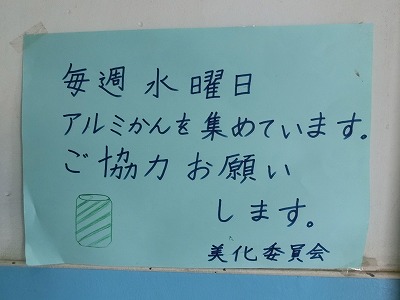 毎週 水曜日
アルミかんを集めています。
ご協力お願い
します。
美化委員会